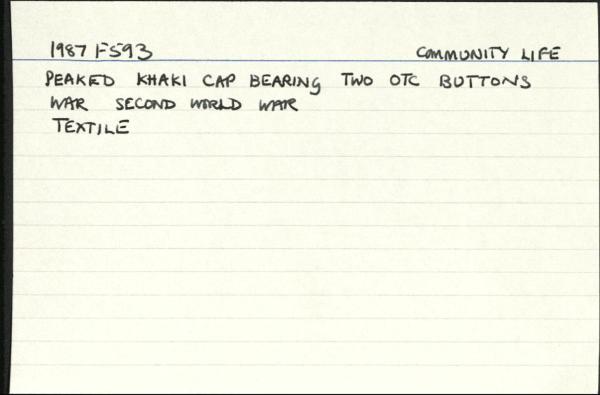 1987 F593 COMMUNITY LIFE
PEAKED KHAKI CAP BEARING TWO OTC BUTTONS
WAR SECOND WORLD WAR
TEXTILE